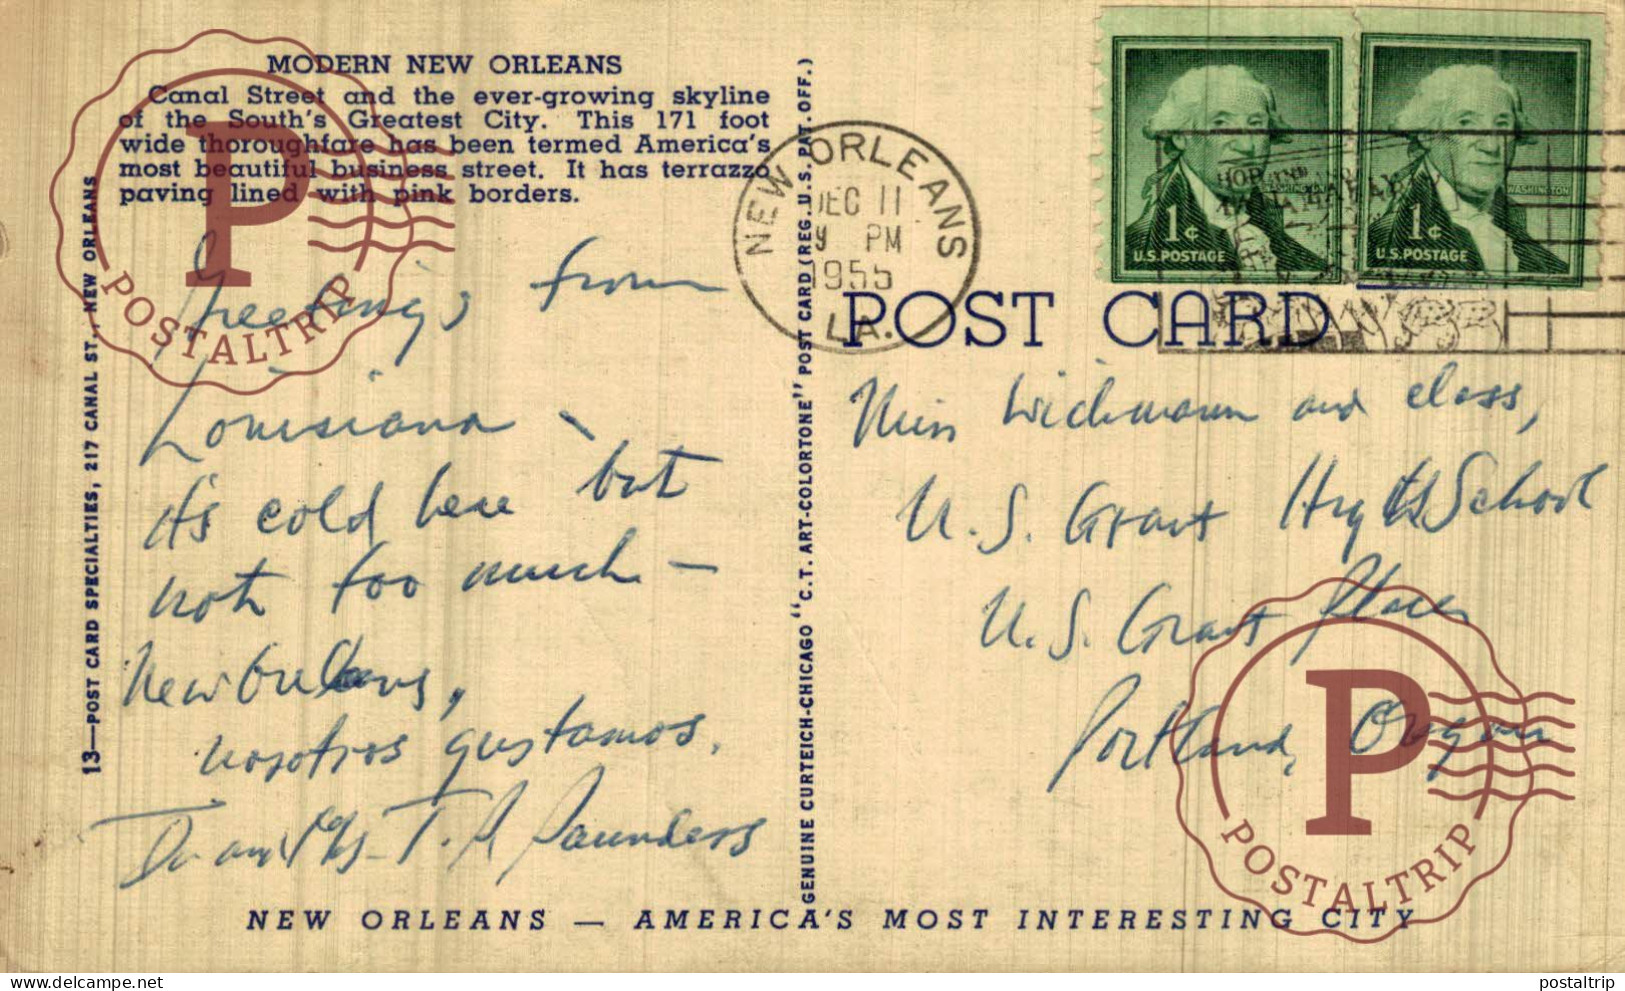 MODERN NEW ORLEANS
Canal Street and the ever-growing skyline
of the South's Greatest City. This 171 foot
wide thoroughfare has been termed America's
most beautiful business street. It has terrazzo
paving lined with pink borders.
Greetings from
Louisiana -
it's cold here but
not too much -
New Orleans,
nosotros gustamos.
Dr. and Mrs. T. R. Saunders
13—POST CARD SPECIALTIES, 217 CANAL ST., NEW ORLEANS
GENUINE CURTEICH-CHICAGO "C.T. ART-COLORTONE" POST CARD (REG. U.S. PAT. OFF.)
NEW ORLEANS
DEC 11
9 PM
1955
LA.
WASHINGTON
1¢
U.S. POSTAGE
WASHINGTON
1¢
U.S. POSTAGE
POST CARD
Miss Wichmann and class,
U.S. Grant High School
U.S. Grant Place
Portland, Oregon
NEW ORLEANS — AMERICA'S MOST INTERESTING CITY
P
POSTALTRIP
P
POSTALTRIP
postaltrip